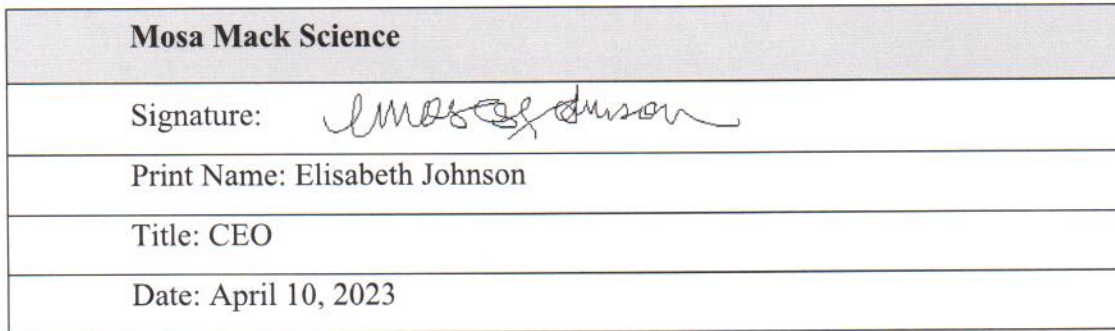 Mosa Mack Science
Signature:
Print Name: Elisabeth Johnson
Title: CEO
Date: April 10, 2023